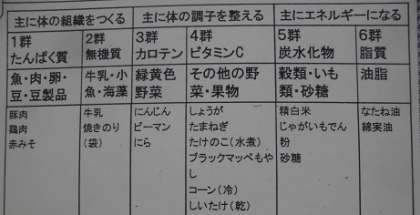 主に体の組織をつくる
主に体の調子を整える
主にエネルギーになる
1群
たんぱく質
2群
無機質
3群
カロテン
4群
ビタミンC
5群
炭水化物
6群
脂質
魚・肉・卵・
豆・豆製品
牛乳・小
魚・海藻
緑黄色
野菜
その他の野
菜・果物
穀類・いも
類・砂糖
油脂
豚肉
鶏肉
赤みそ
牛乳
焼きのり
(袋)
にんじん
ピーマン
にら
しょうが
たまねぎ
たけのこ(水煮)
ブラックマッペもや
し
コーン(冷)
しいたけ(乾)
精白米
じゃがいもでん
粉
砂糖
なたね油
綿実油